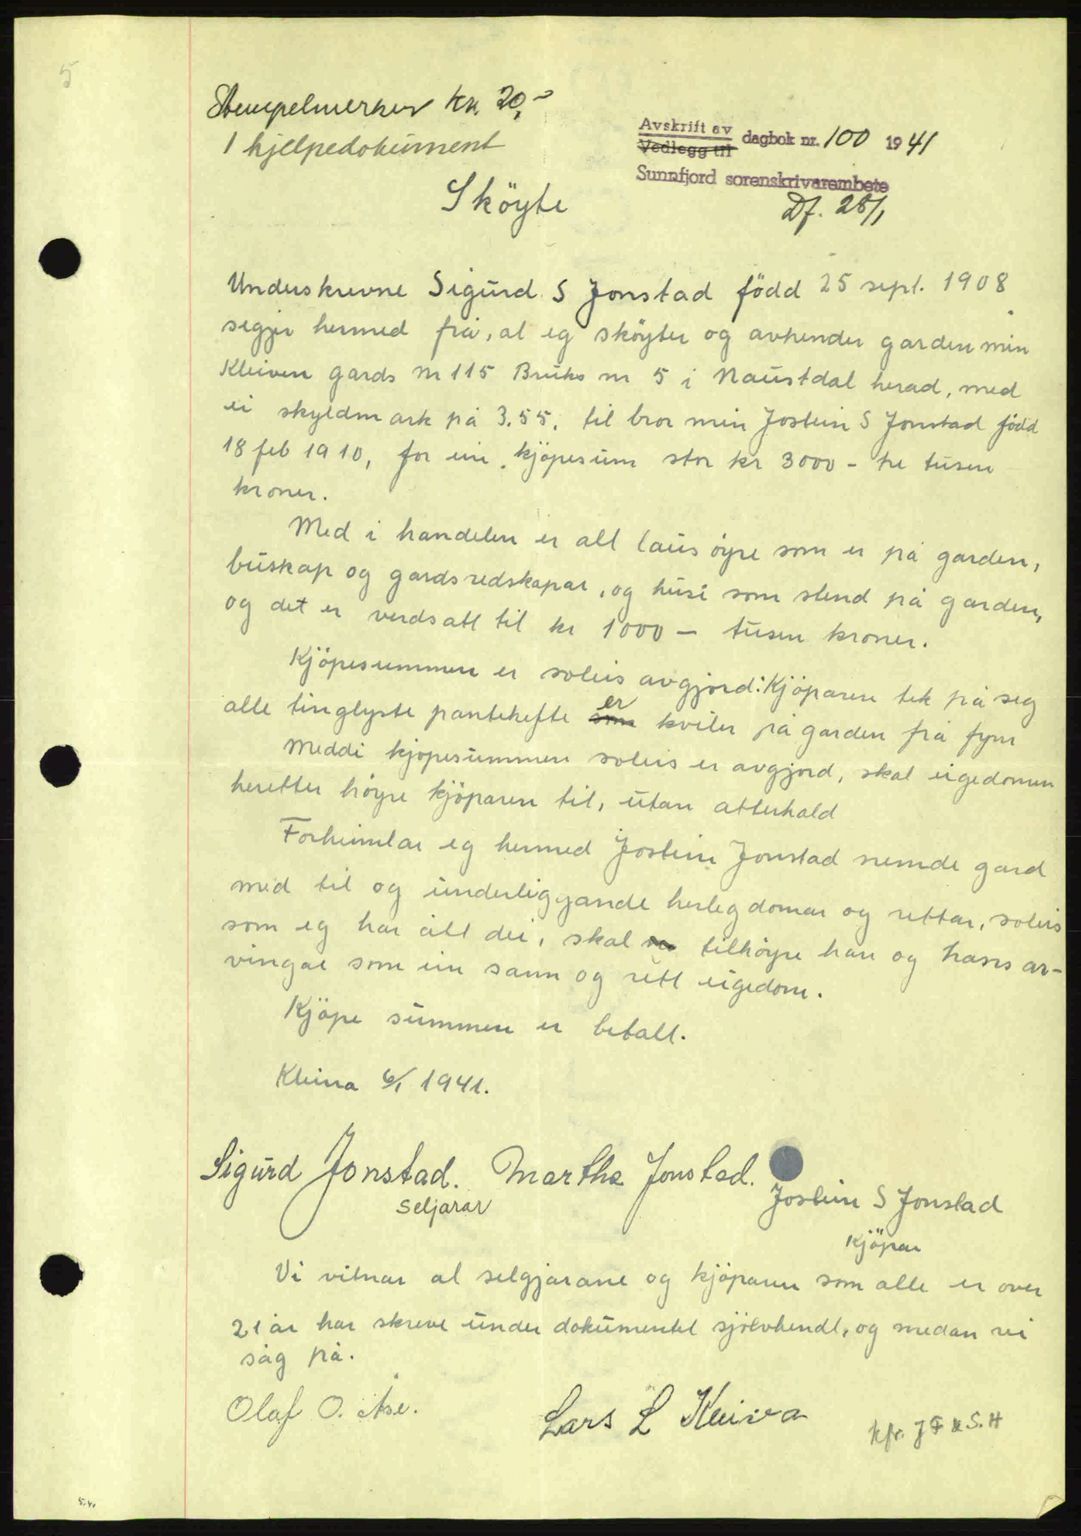 5
Stempelmerker kr. 20,-
1 hjelpedokument
Avskrift av
Vedlegg til dagbok nr. 100 1941
Sunnfjord sorenskrivarembete
Df. 28/1
Sköyte
Underskrevne Sigurd S Jonstad född 25 sept. 1908
segjer hermed frå, at eg sköyter og avhender garden min
Kleiven gards nr 115 Bruks nr 5 i Naustdal herad, med
ei skyldmark på 3.55, til bror min Jostein S Jonstad född
18 feb 1910, for ein kjöpesum stor kr 3000 - tre tusen
kroner.
Med i handelen er alt laus öyre som er på garden,
buskap og gardsredskapar, og husi som stend på garden,
og det er verdsatt til kr 1000 - tusen kroner.
Kjöpesummen er soleis avgjord: Kjöparen tek på seg
alle tinglyste pantehefte som er kviler på garden frå fyrr
Meddi kjöpesummen soleis er avgjord, skal eigedomen
heretter höyre kjöparen til, utan atterhald
Forheimlar eg hermed Jostein Jonstad nemde gard
med til og underliggande herlegdomar og rettar, soleis
som eg har ått dei, skal tilhöyre han og hans ar-
vingar som ein sann og rett eigedom.
Kjöpe summen er betalt.
Kleiva 6/1 1941.
Sigurd Jonstad. Marthe Jonstad.
Seljarar
Jostein S Jonstad
Kjöpar
Vi vitnar at selgjarane og kjöparen som alle er over
21 år har skreve under dokumentet sjölvhendt, og medan vi
såg på.
Olaf O. Åse.
Lars L Kleiva
kfr. J F & S.H